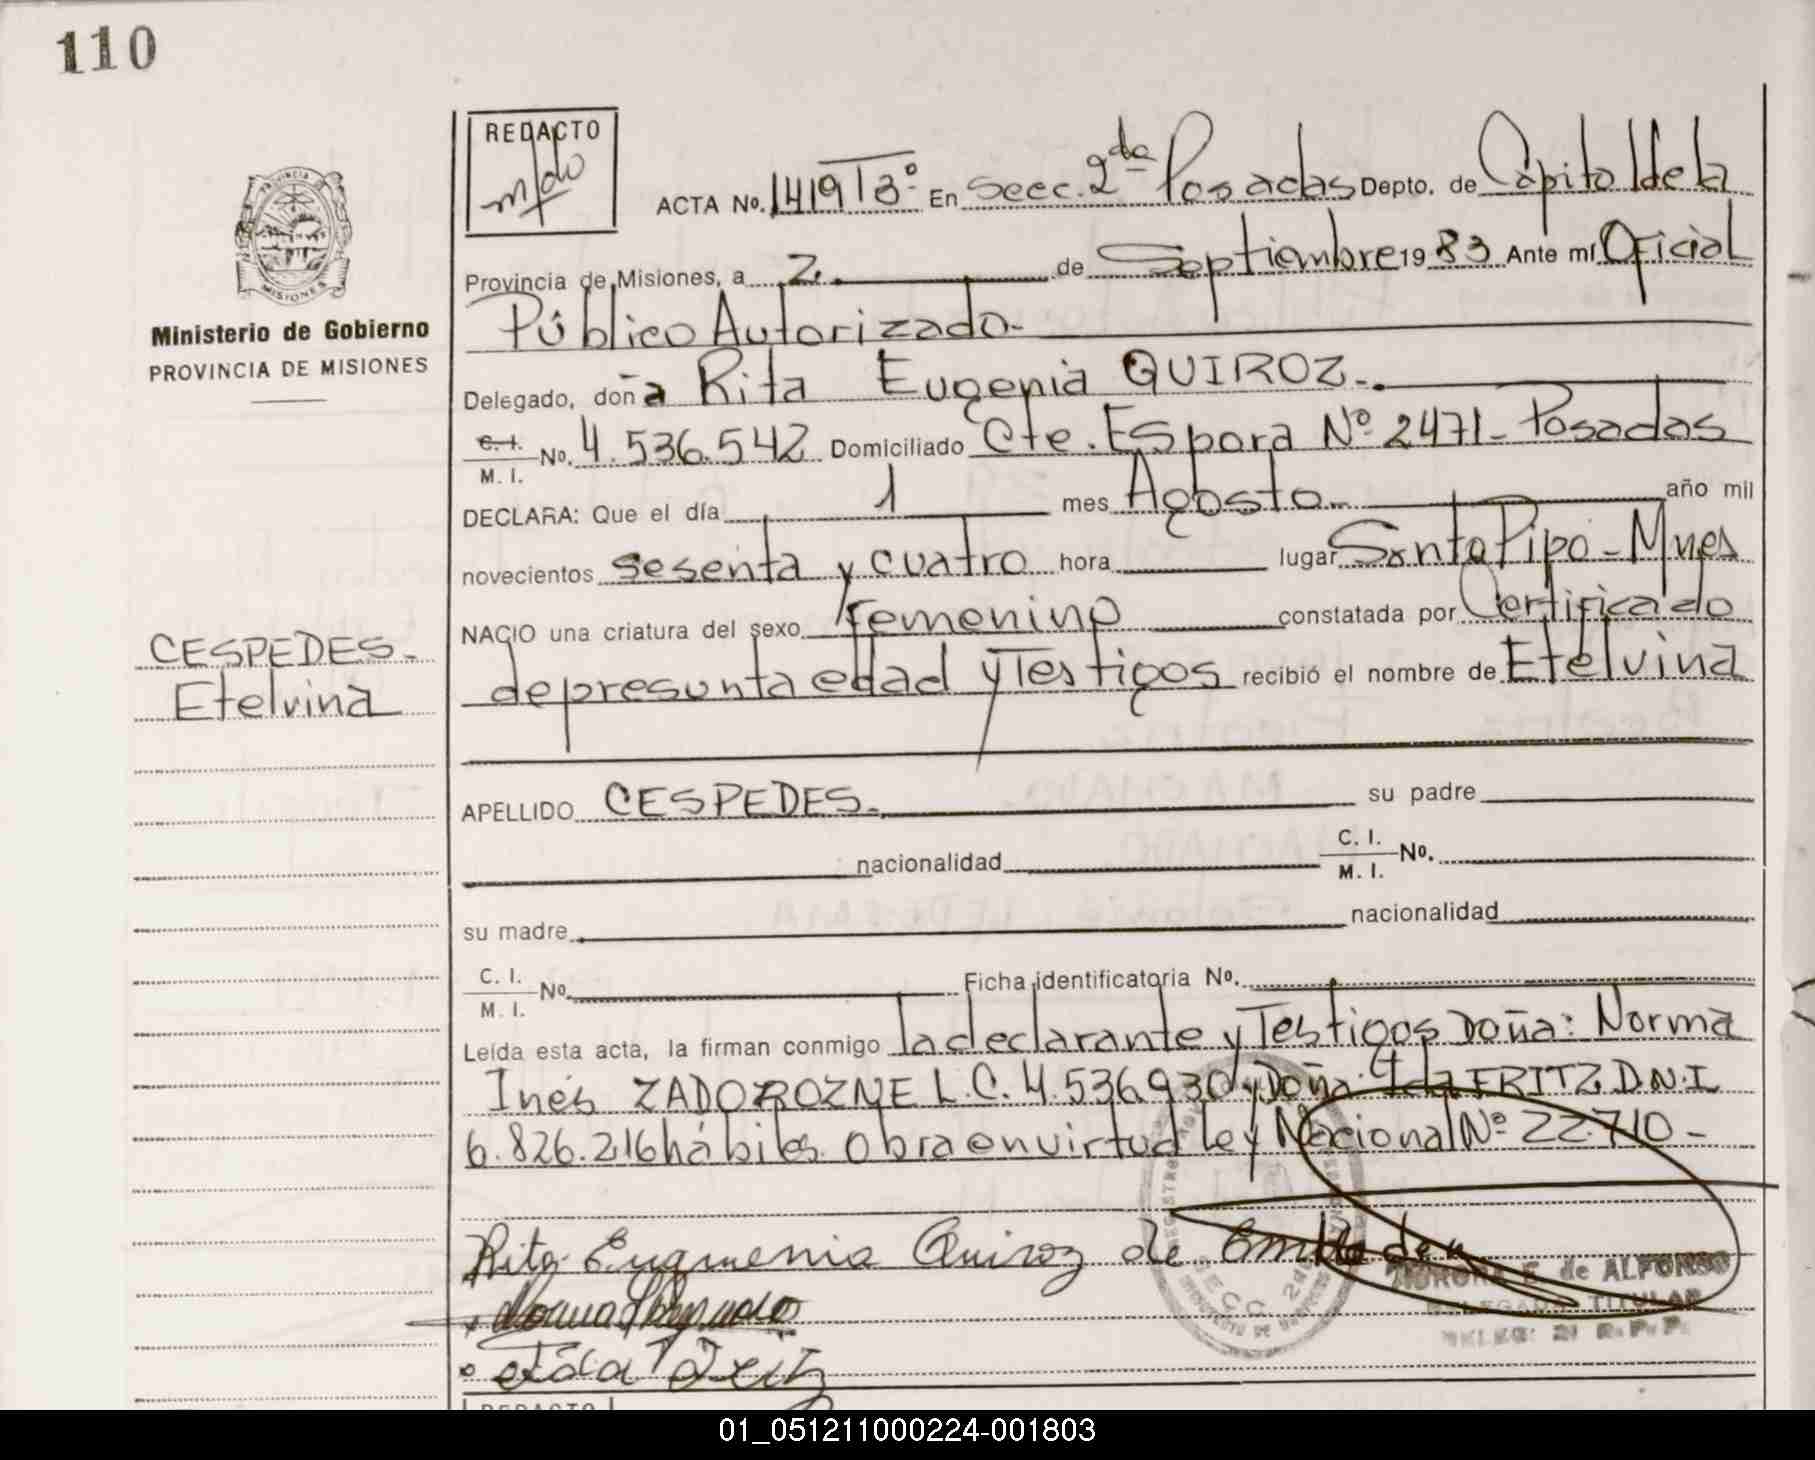 110
REDACTO
ACTA No. 1419 T3º En Secc. 2da Posadas Depto. de Capital de la
Provincia de Misiones, a 2. de Septiembre 1983 Ante mí Oficial
Público Autorizado-
Ministerio de Gobierno
PROVINCIA DE MISIONES
Delegado, doña Rita Eugenia QUIROZ-.
C. I. M. I. No. 4.536.542 Domiciliado Cte. Espora Nº 2471- Posadas
DECLARA: Que el día 1 mes Agosto- año mil
novecientos sesenta y cuatro hora lugar Santo Pipo - Mnes
NACIO una criatura del sexo femenino constatada por Certificado
de presunta edad y Testigos recibió el nombre de Etelvina
CESPEDES-
Etelvina
APELLIDO CESPEDES- su padre
nacionalidad C. I. M. I. No.
su madre nacionalidad
C. I. M. I. No. Ficha identificatoria No.
Leída esta acta, la firman conmigo la declarante y Testigos Doña: Norma
Inés ZADOROZNE L.C. 4.536930 y Doña Ida FRITZ D.N.I
6.826.216 hábiles. Obra en virtud Ley Nacional Nº 22.710-
Rita Eugenia Quiroz de
E. de ALFONSO
DELEGADA TITULAR
Ida Fritz
REDACTO
01_051211000224-001803